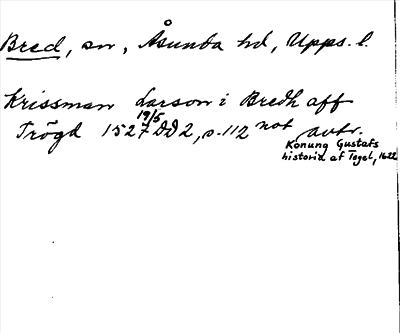 Bred, sn, Åsunda hd, Upps. l.
Krissman Larson i Bredh aff
Trögd 1527 19/5 DD 2, s. 112 not avtr.
Konung Gustafs
historia af Tegel, 1622